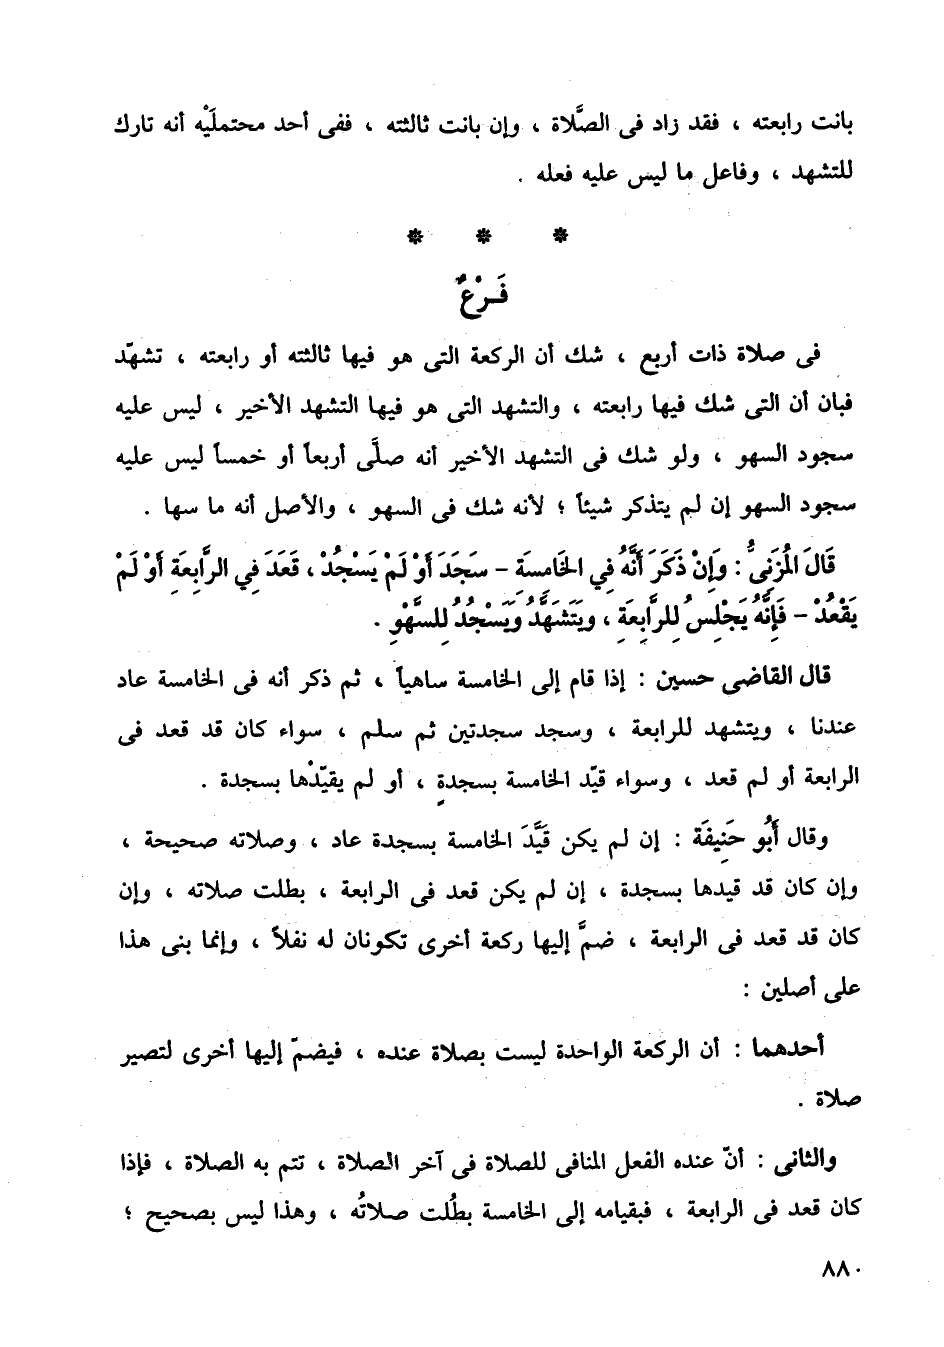 بانت رابعته ، فقد زاد فى الصَّلاة ، وإن بانت ثالثته ، ففى أحد محتملَيْه أنه تارك
للتشهد ، وفاعل ما ليس عليه فعله .
* * *
فَرْعٌ
فى صلاة ذات أربع ، شك أن الركعة التى هو فيها ثالثته أو رابعته ، تشهّد
فبان أن التى شك فيها رابعته ، والتشهد التى هو فيها التشهد الأخير ، ليس عليه
سجود السهو ، ولو شك فى التشهد الأخير أنه صلَّى أربعاً أو خمساً ليس عليه
سجود السهو إن لم يتذكر شيئاً ؛ لأنه شك فى السهو ، والأصل أنه ما سها .
قَالَ المُزَنِيُّ : وَإِنْ ذَكَرَ أَنَّهُ فِي الخَامِسَةِ – سَجَدَ أَوْ لَمْ يَسْجُدْ ، قَعَدَ فِي الرَّابِعَةِ أَوْ لَمْ
يَقْعُدْ – فَإِنَّهُ يَجْلِسُ لِلرَّابِعَةِ ، وَيَتَشَهَّدُ وَيَسْجُدُ لِلسَّهْوِ .
قال القاضى حسين : إذا قام إلى الخامسة ساهياً ، ثم ذكر أنه فى الخامسة عاد
عندنا ، ويتشهد للرابعة ، وسجد سجدتين ثم سلم ، سواء كان قد قعد فى
الرابعة أو لم قعد ، وسواء قيّد الخامسة بسجدةٍ ، أو لم يقيّدْها بسجدة .
وقال أَبُو حَنِيفَة : إن لم يكن قَيَّدَ الخامسة بسجدة عاد ، وصلاته صحيحة ،
وإن كان قد قيدها بسجدة ، إن لم يكن قعد فى الرابعة ، بطلت صلاته ، وإن
كان قد قعد فى الرابعة ، ضمَّ إليها ركعة أخرى تكونان له نفلاً ، وإنما بنى هذا
على أصلين :
أحدهما : أن الركعة الواحدة ليست بصلاة عنده ، فيضمّ إليها أخرى لتصير
صلاة .
والثانى : أنّ عنده الفعل المنافى للصلاة فى آخر الصلاة ، تتم به الصلاة ، فإذا
كان قعد فى الرابعة ، فبقيامه إلى الخامسة بطُلت صلاتُه ، وهذا ليس بصحيح ؛
٨٨٠